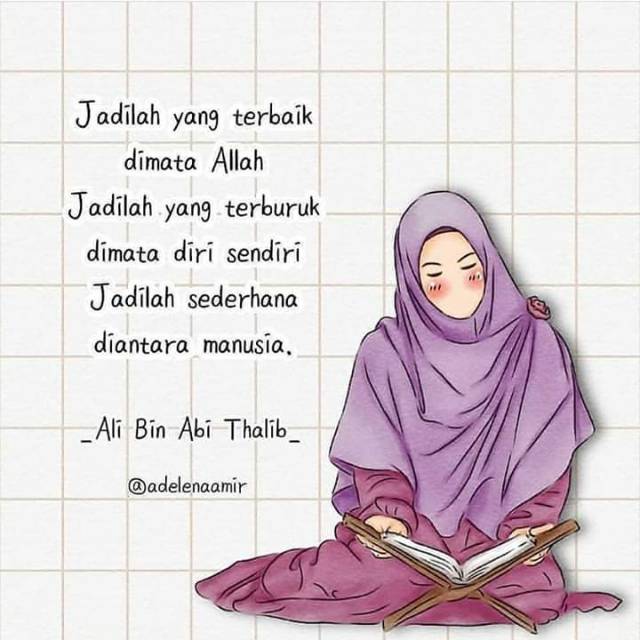 Jadilah yang terbaik
dimata Allah
Jadilah yang terburuk
dimata diri sendiri
Jadilah sederhana
diantara manusia.
_Ali Bin Abi Thalib_
@adelenaamir